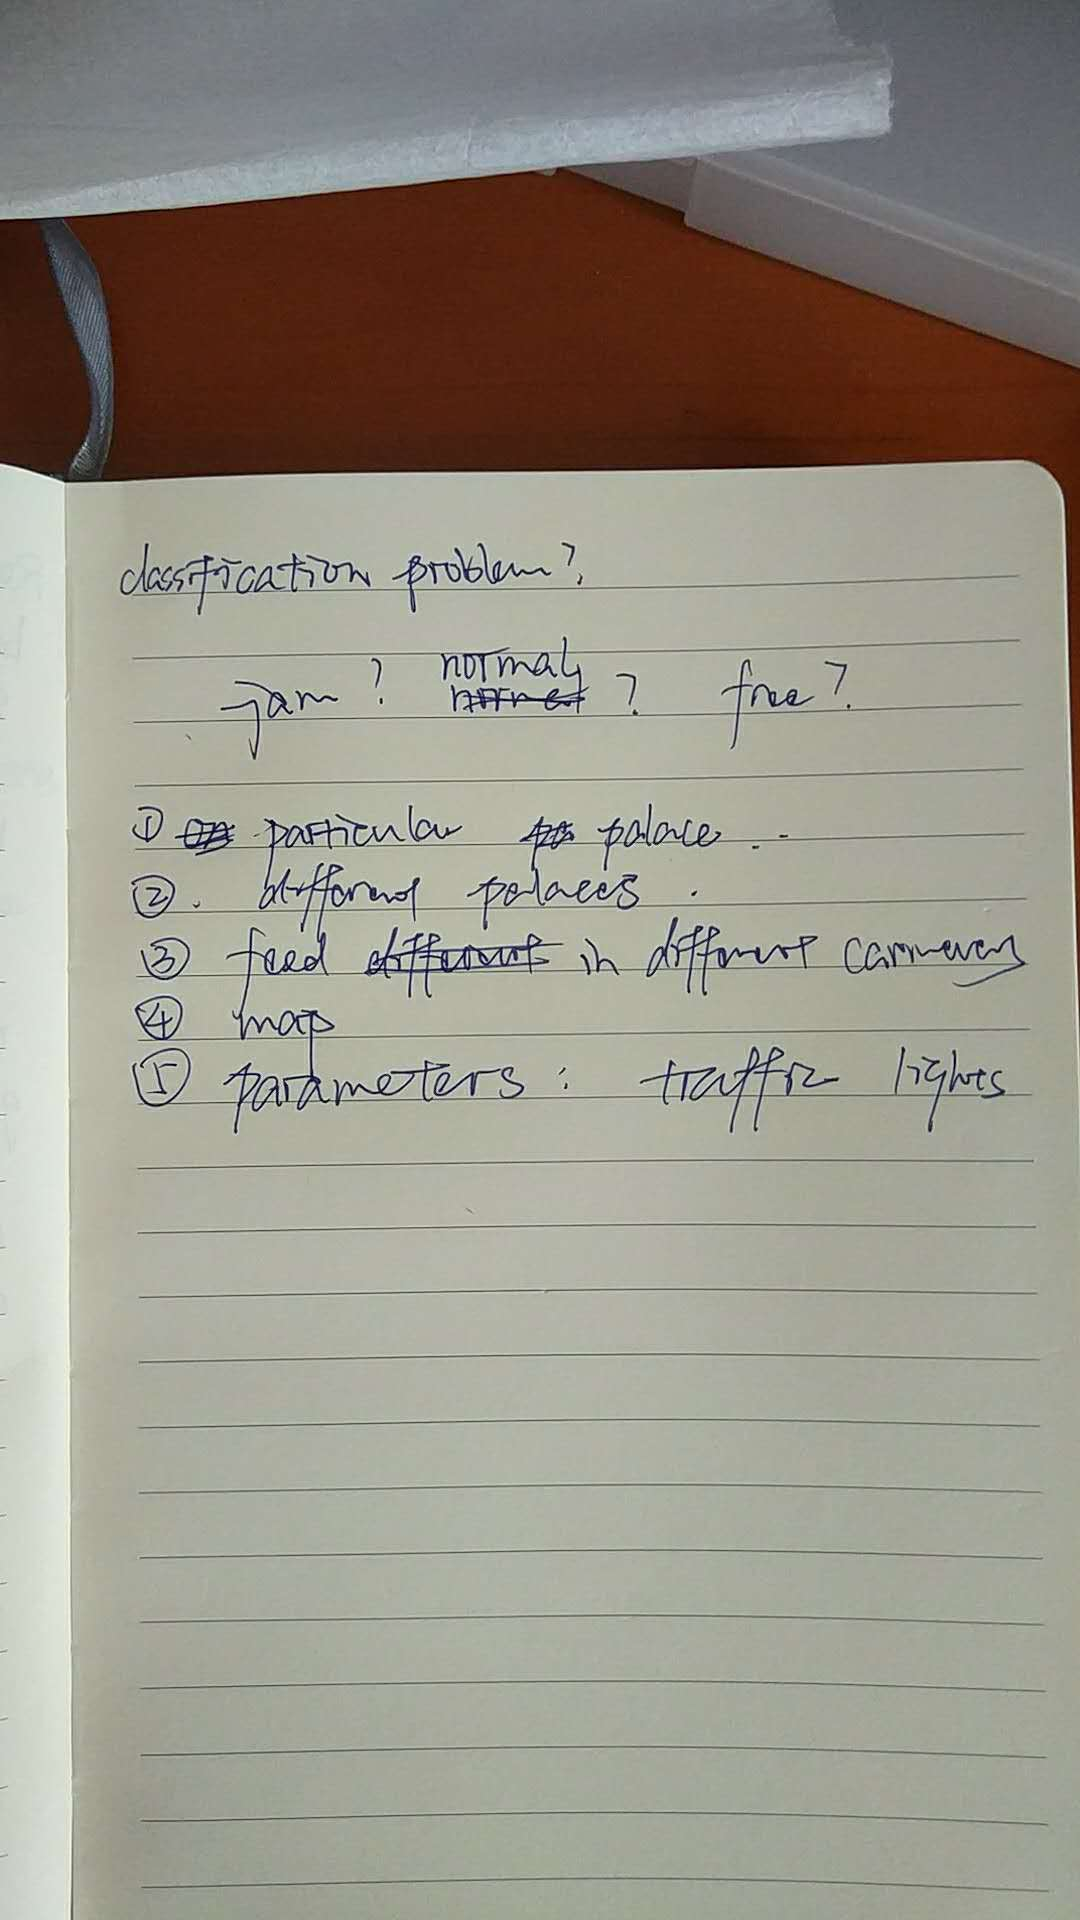 classification problem?
jam? normal? free?
① particular palace..
②. different palaces.
③ feed in different
④ map
⑤ parameters: traffic lights